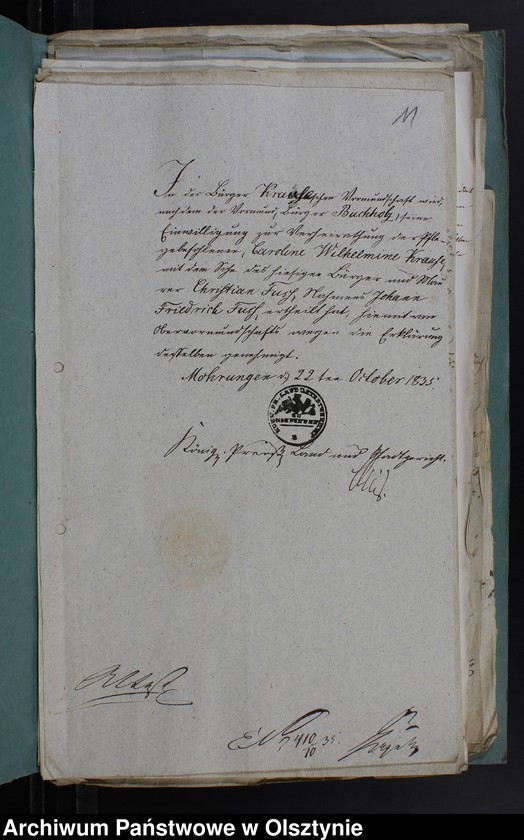 11
In der Bürger Krauseschen Vormundschaft wird,
nachdem der Vormund, Bürger Buchholz, seine
Einwilligung zur Verheirathung der Pfle-
gebefohlenen, Caroline Wilhelmine Krause,
mit dem Sohn des hiesigen Bürger und Mau-
rer Christian Fuss, Nahmens Johann
Friedrich Fuss, ertheilt hat, hiemit von
Obervormundschafts wegen die Erklärung
desselben genehmigt.
Mohrungen d 22 ten October 1835.
Königl. Preuss. Land und Stadtgericht.
Attest
410/10 35.
Archiwum Państwowe w Olsztynie